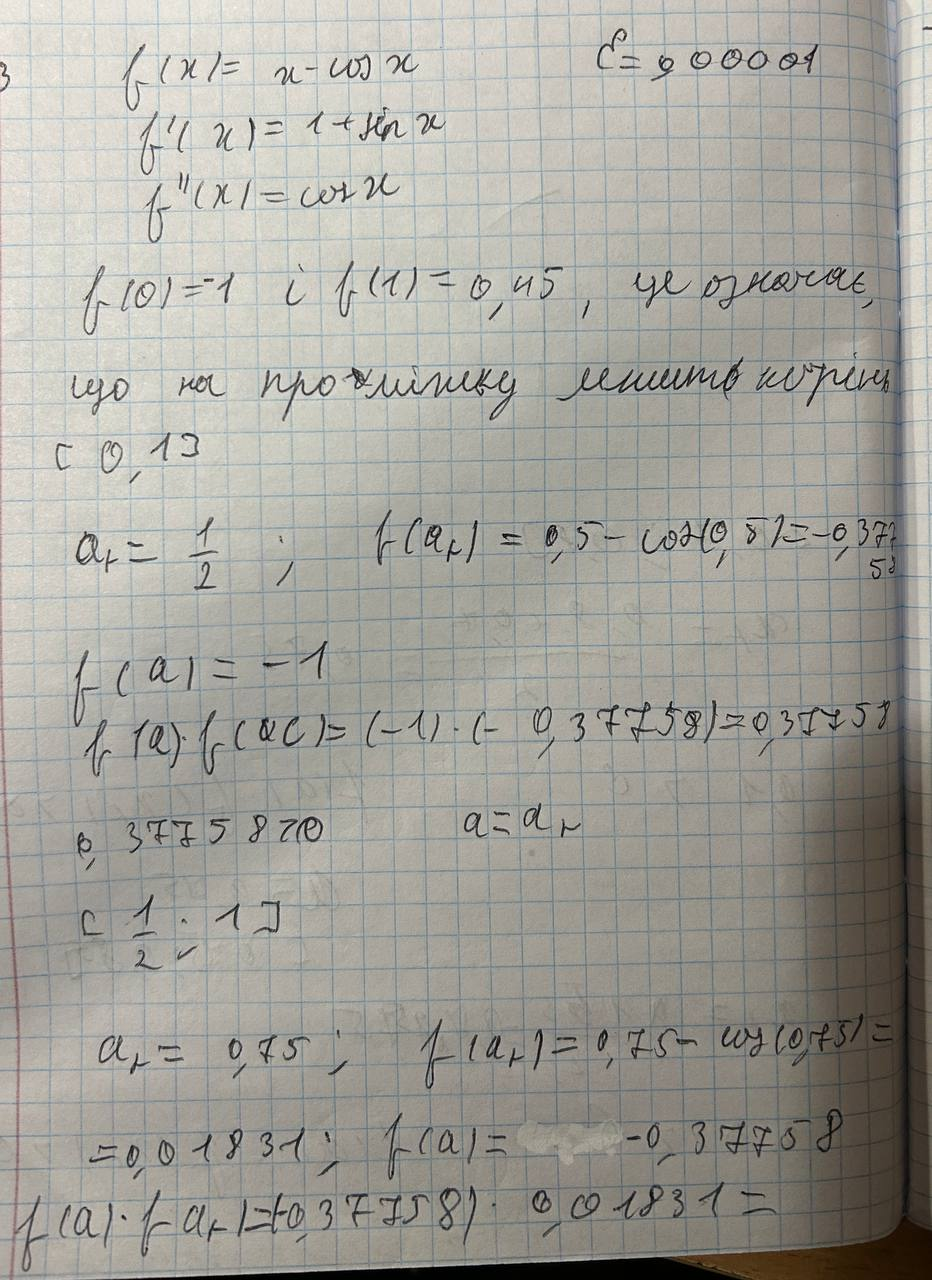 3
f(x)= x-cos x   ε=0,00001
f'(x)= 1+sin x
f''(x)=cos x
f(0)=-1 і f(1)=0,45, це означає,
що на проміжку лежить корінь
[0,1]
aᵣ= 1/2 ; f(aᵣ) = 0,5- cos(0,5)=-0,377
58
f(a)=-1
f(a)·f(ac)=(-1)·(-0,37758)=0,37758
0,37758>0   a=aᵣ
[1/2; 1]
aᵣ= 0,75; f(aᵣ)=0,75- cos(0,75)=
=0,01831; f(a)= -0,37758
f(a)·f aᵣ)=(-0,37758)· 0,01831=